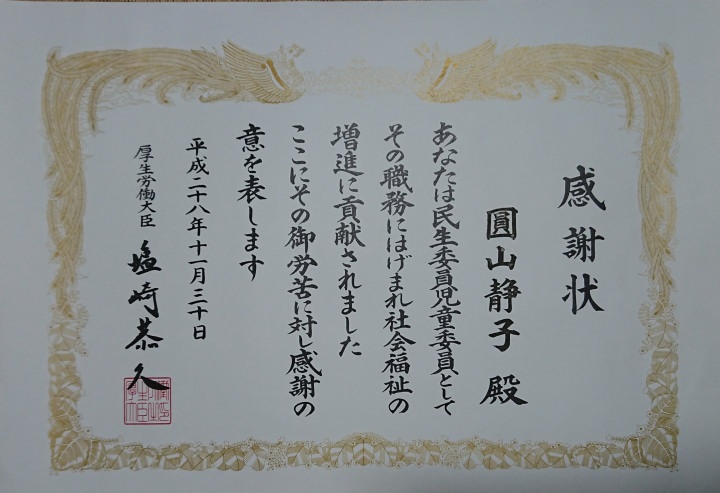 感謝状
圓山静子 殿
あなたは民生委員児童委員として
その職務にはげまれ社会福祉の
増進に貢献されました
ここにその御労苦に対し感謝の
意を表します
平成二十八年十一月三十日
厚生労働大臣 塩崎恭久